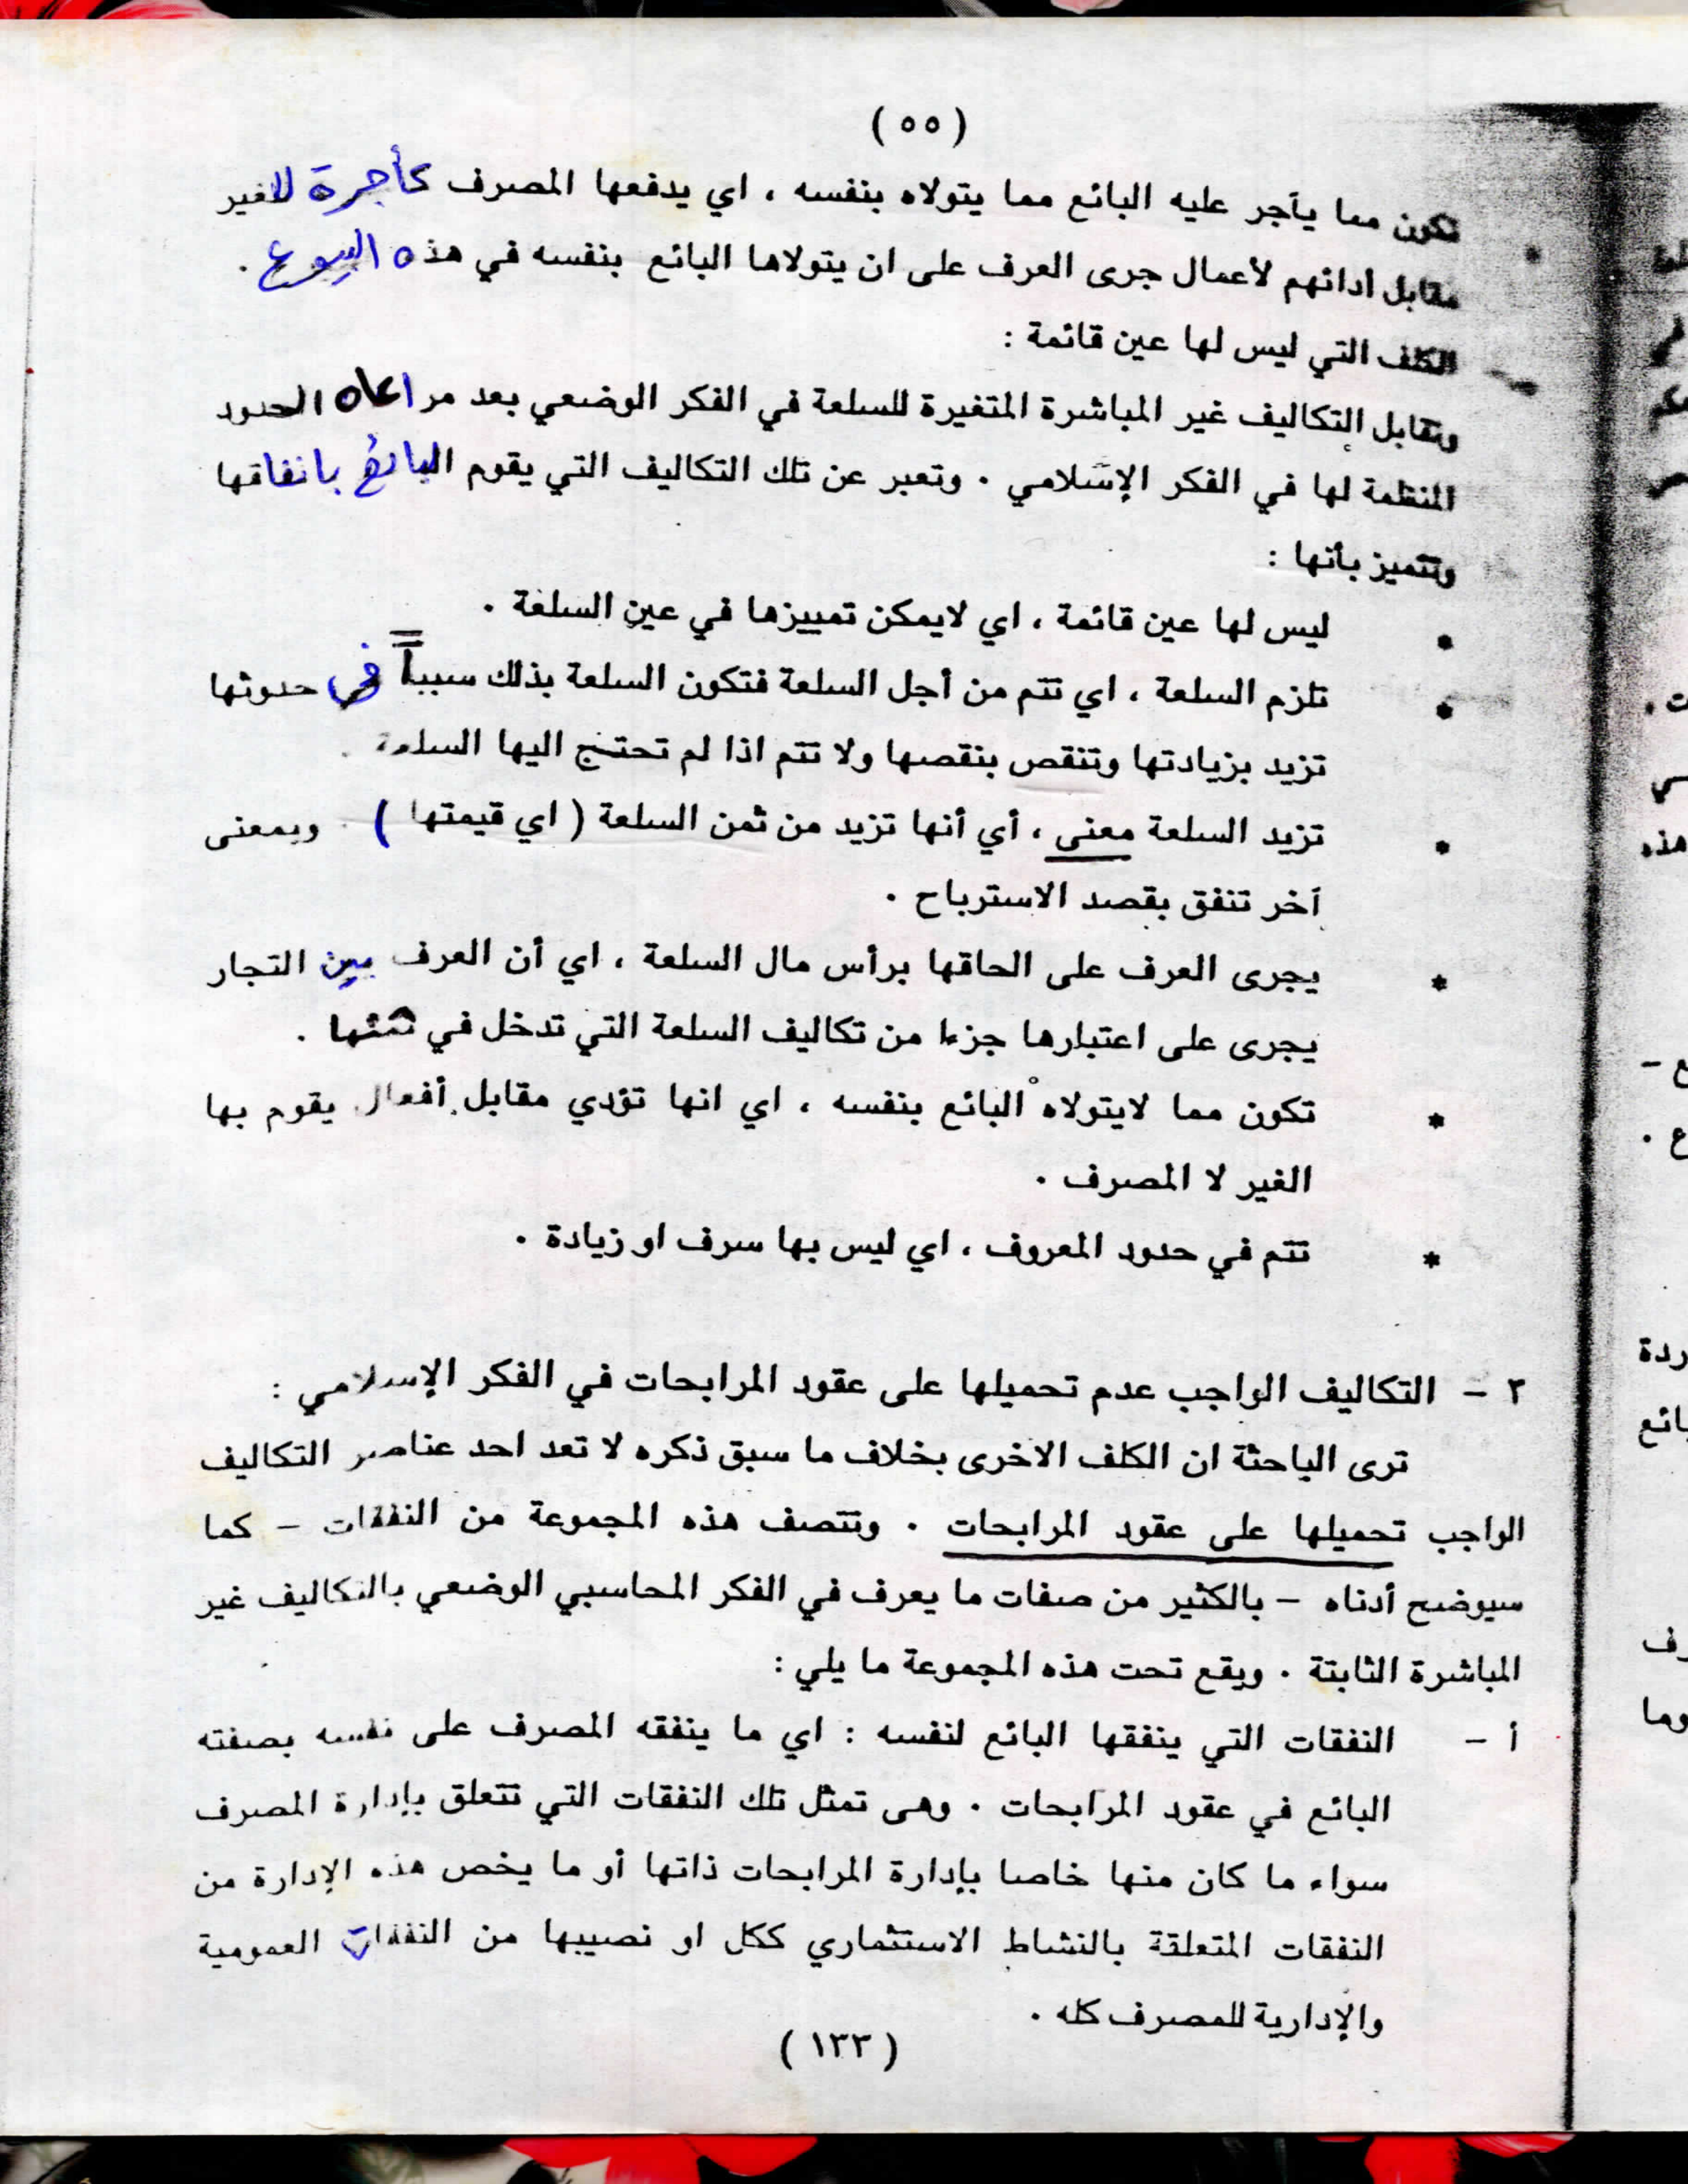 (٥٥)
* تكون مما يأجر عليه البائع مما يتولاه بنفسه ، اي يدفعها المصرف كأجرة للغير
مقابل ادائهم لأعمال جرى العرف على ان يتولاها البائع بنفسه في هذه البيوع .
الكلف التي ليس لها عين قائمة :
وتقابل التكاليف غير المباشرة المتغيرة للسلعة في الفكر الوضعي بعد مراعاه الحدود
المنظمة لها في الفكر الإسلامي . وتعبر عن تلك التكاليف التي يقوم البائع بانفاقها
وتتميز بأنها :
* ليس لها عين قائمة ، اي لايمكن تمييزها في عين السلعة .
* تلزم السلعة ، اي تتم من أجل السلعة فتكون السلعة بذلك سبباً في حدوثها
تزيد بزيادتها وتنقص بنقصها ولا تتم اذا لم تحتج اليها السلعة .
* تزيد السلعة معنى ، أي أنها تزيد من ثمن السلعة ( اي قيمتها ) وبمعنى
آخر تنفق بقصد الاسترباح .
* يجرى العرف على الحاقها برأس مال السلعة ، اي أن العرف بين التجار
يجرى على اعتبارها جزءا من تكاليف السلعة التي تدخل في ثمنها .
* تكون مما لايتولاه البائع بنفسه ، اي انها تؤدي مقابل أفعال يقوم بها
الغير لا المصرف .
* تتم في حدود المعروف ، اي ليس بها سرف او زيادة .
٢ - التكاليف الواجب عدم تحميلها على عقود المرابحات في الفكر الإسلامي :
ترى الباحثة ان الكلف الاخرى بخلاف ما سبق ذكره لا تعد احد عناصر التكاليف
الواجب تحميلها على عقود المرابحات . وتتصف هذه المجموعة من النفقات - كما
سيوضح أدناه - بالكثير من صفات ما يعرف في الفكر المحاسبي الوضعي بالتكاليف غير
المباشرة الثابتة . ويقع تحت هذه المجموعة ما يلي :
أ - النفقات التي ينفقها البائع لنفسه : اي ما ينفقه المصرف على نفسه بصفته
البائع في عقود المرابحات . وهى تمثل تلك النفقات التي تتعلق بإدارة المصرف
سواء ما كان منها خاصا بإدارة المرابحات ذاتها أو ما يخص هذه الإدارة من
النفقات المتعلقة بالنشاط الاستثماري ككل او نصيبها من النفقات العمومية
والإدارية للمصرف كله .
(١٣٣)
هذه
ع -
ع .
ردة
بائع
رف
وما